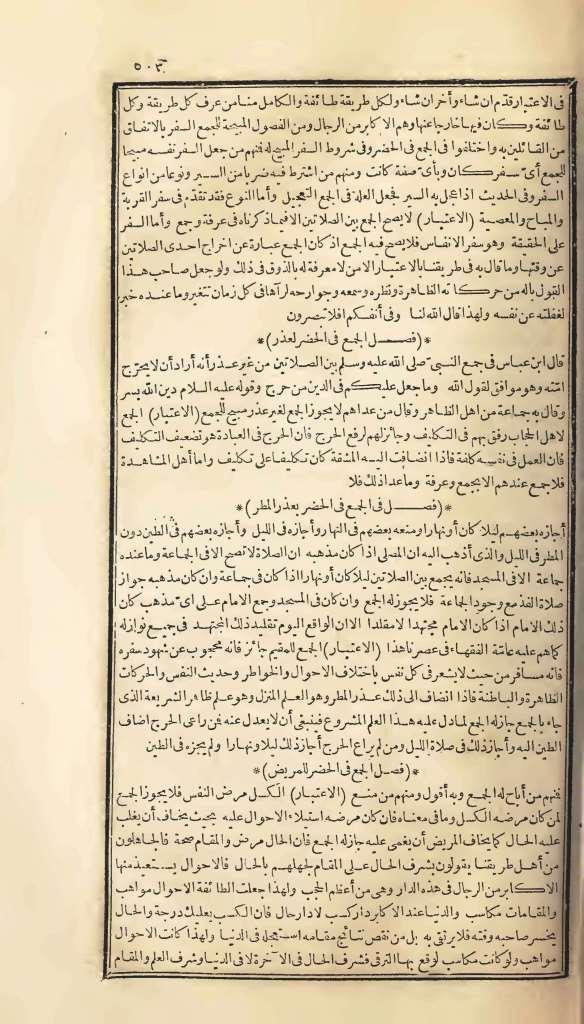 ٥٠٣
فى الاعتبار قدّم ان شاء وأخر ان شاء ولكل طريقة طائفة والكامل منا من عرف كل طريقة وكل
طائفة وكان فيها خارجا عنها وهم الاكابر من الرجال ومن الفصول المبيحة للجمع السفر بالاتفاق
من القائلين به واختلفوا فى الجمع فى الحضر وفى شروط السفر المبيح له فمنهم من جعل السفر نفسه مبيحا
للجمع أىّ سفر كان وبأىّ صفة كانت ومنهم من اشترط فيه ضربا من السير ونوعا من انواع
السفر وفى الحديث اذا عجل به السير فجعل العلة فى الجمع التعجيل وأما النوع فقد تقدّم فى سفر القربة
والمباح والمعصية (الاعتبار) لا يصح الجمع بين الصلاتين الا فيما ذكرناه فى عرفة وجمع وأما السفر
على الحقيقة وهو سفر الانفاس فلا يصح فيه الجمع اذ كان الجمع عبارة عن اخراج احدى الصلاتين
عن وقتها وما قال به فى طريقنا بالاعتبار الا من لا معرفة له بالذوق فى ذلك ولو جعل صاحب هذا
القول باله من حركاته الظاهرة ونظره وسمعه وجوارحه لرآها فى كل زمان تتغير وما عنده خبر
لغفلته عن نفسه ولهذا قال الله لنا وفى أنفسكم افلا تبصرون
*(فصـــل الجمع فى الحضر لعذر)*
قال ابن عباس فى جمع النبىّ صلى الله عليه وسلم بين الصلاتين من غير عذر أنه أراد أن لا يحرّج
امّته وهو موافق لقول الله وما جعل عليكم فى الدين من حرج وقوله عليه السلام دين الله يسر
وقال به جماعة من اهل الظاهر وقال من عداهم لا يجوز الجمع لغير عذر مبيح للجمع (الاعتبار) الجمع
لاهل الحجاب رفق بهم فى التكليف وجائز لهم لرفع الحرج فان الحرج فى العبادة هو تضعيف التكليف
فان العمل فى نفسه كلفة فاذا انضافت اليه المشقة كان تكليفا على تكليف واما أهل المشاهدة
فلا جمع عندهم الا بجمع وعرفة وما عدا ذلك فلا
*(فصــل فى الجمع فى الحضر بعذر المطر)*
أجازه بعضهم ليلا كان أو نهارا ومنعه بعضهم فى النهار وأجازه فى الليل وأجازه بعضهم فى الطين دون
المطر فى الليل والذى أذهب اليه ان المصلى اذا كان مذهبه ان الصلاة لا تصح الا فى الجماعة وما عنده
جماعة الا فى المسجد فانه يجمع بين الصلاتين ليلا كان أو نهارا اذا كان فى جماعة وان كان مذهبه جواز
صلاة الفذ مع وجود الجماعة فلا يجوز له الجمع وان كان فى المسجد وجمع الامام على اىّ مذهب كان
ذلك الامام اذا كان الامام مجتهدا لا مقلدا الا ان الواقع اليوم تقليد ذلك المجتهد فى جميع نوازله
كما هم عليه عامّة الفقهاء فى عصرنا هذا (الاعتبار) الجمع للمقيم جائز فانه محجوب عن شهود سفره
فانه مسافر من حيث لا يشعر فى كل نفس باختلاف الاحوال والخواطر وحديث النفس والحركات
الظاهرة والباطنة فاذا انضاف الى ذلك عذر المطر وهو العلم المنزل وهو علم ظاهر الشريعة الذى
جاء بالجمع جاز له الجمع لما دل عليه هذا العلم المشروع فينبغى أن لا يعدل عنه فمن راعى الحرج اضاف
الطين اليه وأجاز ذلك فى صلاة الليل ومن لم يراع الحرج أجاز ذلك ليلا ونهارا ولم يجزه فى الطين
*(فصــل الجمع فى الحضر للمريض)*
فمنهم من أباح له الجمع وبه أقول ومنهم من منع (الاعتبار) الكسل مرض النفس فلا يجوز الجمع
لمن كان مرضه الكسل وما فى معناه فان كان مرضه استيلاء الاحوال عليه بحيث يخاف أن يغلب
عليه الحال كما يخاف المريض أن يغمى عليه جاز له الجمع فان الحال مرض والمقام صحة فالجاهلون
من أهل طريقنا يقولون بشرف الحال على المقام لجهلهم بالحال فالاحوال يستعيذ منها
الاكابر من الرجال فى هذه الدار وهى من أعظم الحجب ولهذا جعلت الطائفة الاحوال مواهب
والمقامات مكاسب والدنيا عند الاكابر دار كسب لا دار حال فان الكسب يعليك درجة والحال
يخسر صاحبه وقته فلا يرتقى به بل من نقص نتائج مقامه استعجله فى الدنيا ولهذا كانت الاحوال
مواهب ولو كانت مكاسب لوقع بها الترقى فشرف الحال فى الآخرة لا فى الدنيا وشرف العلم والمقام